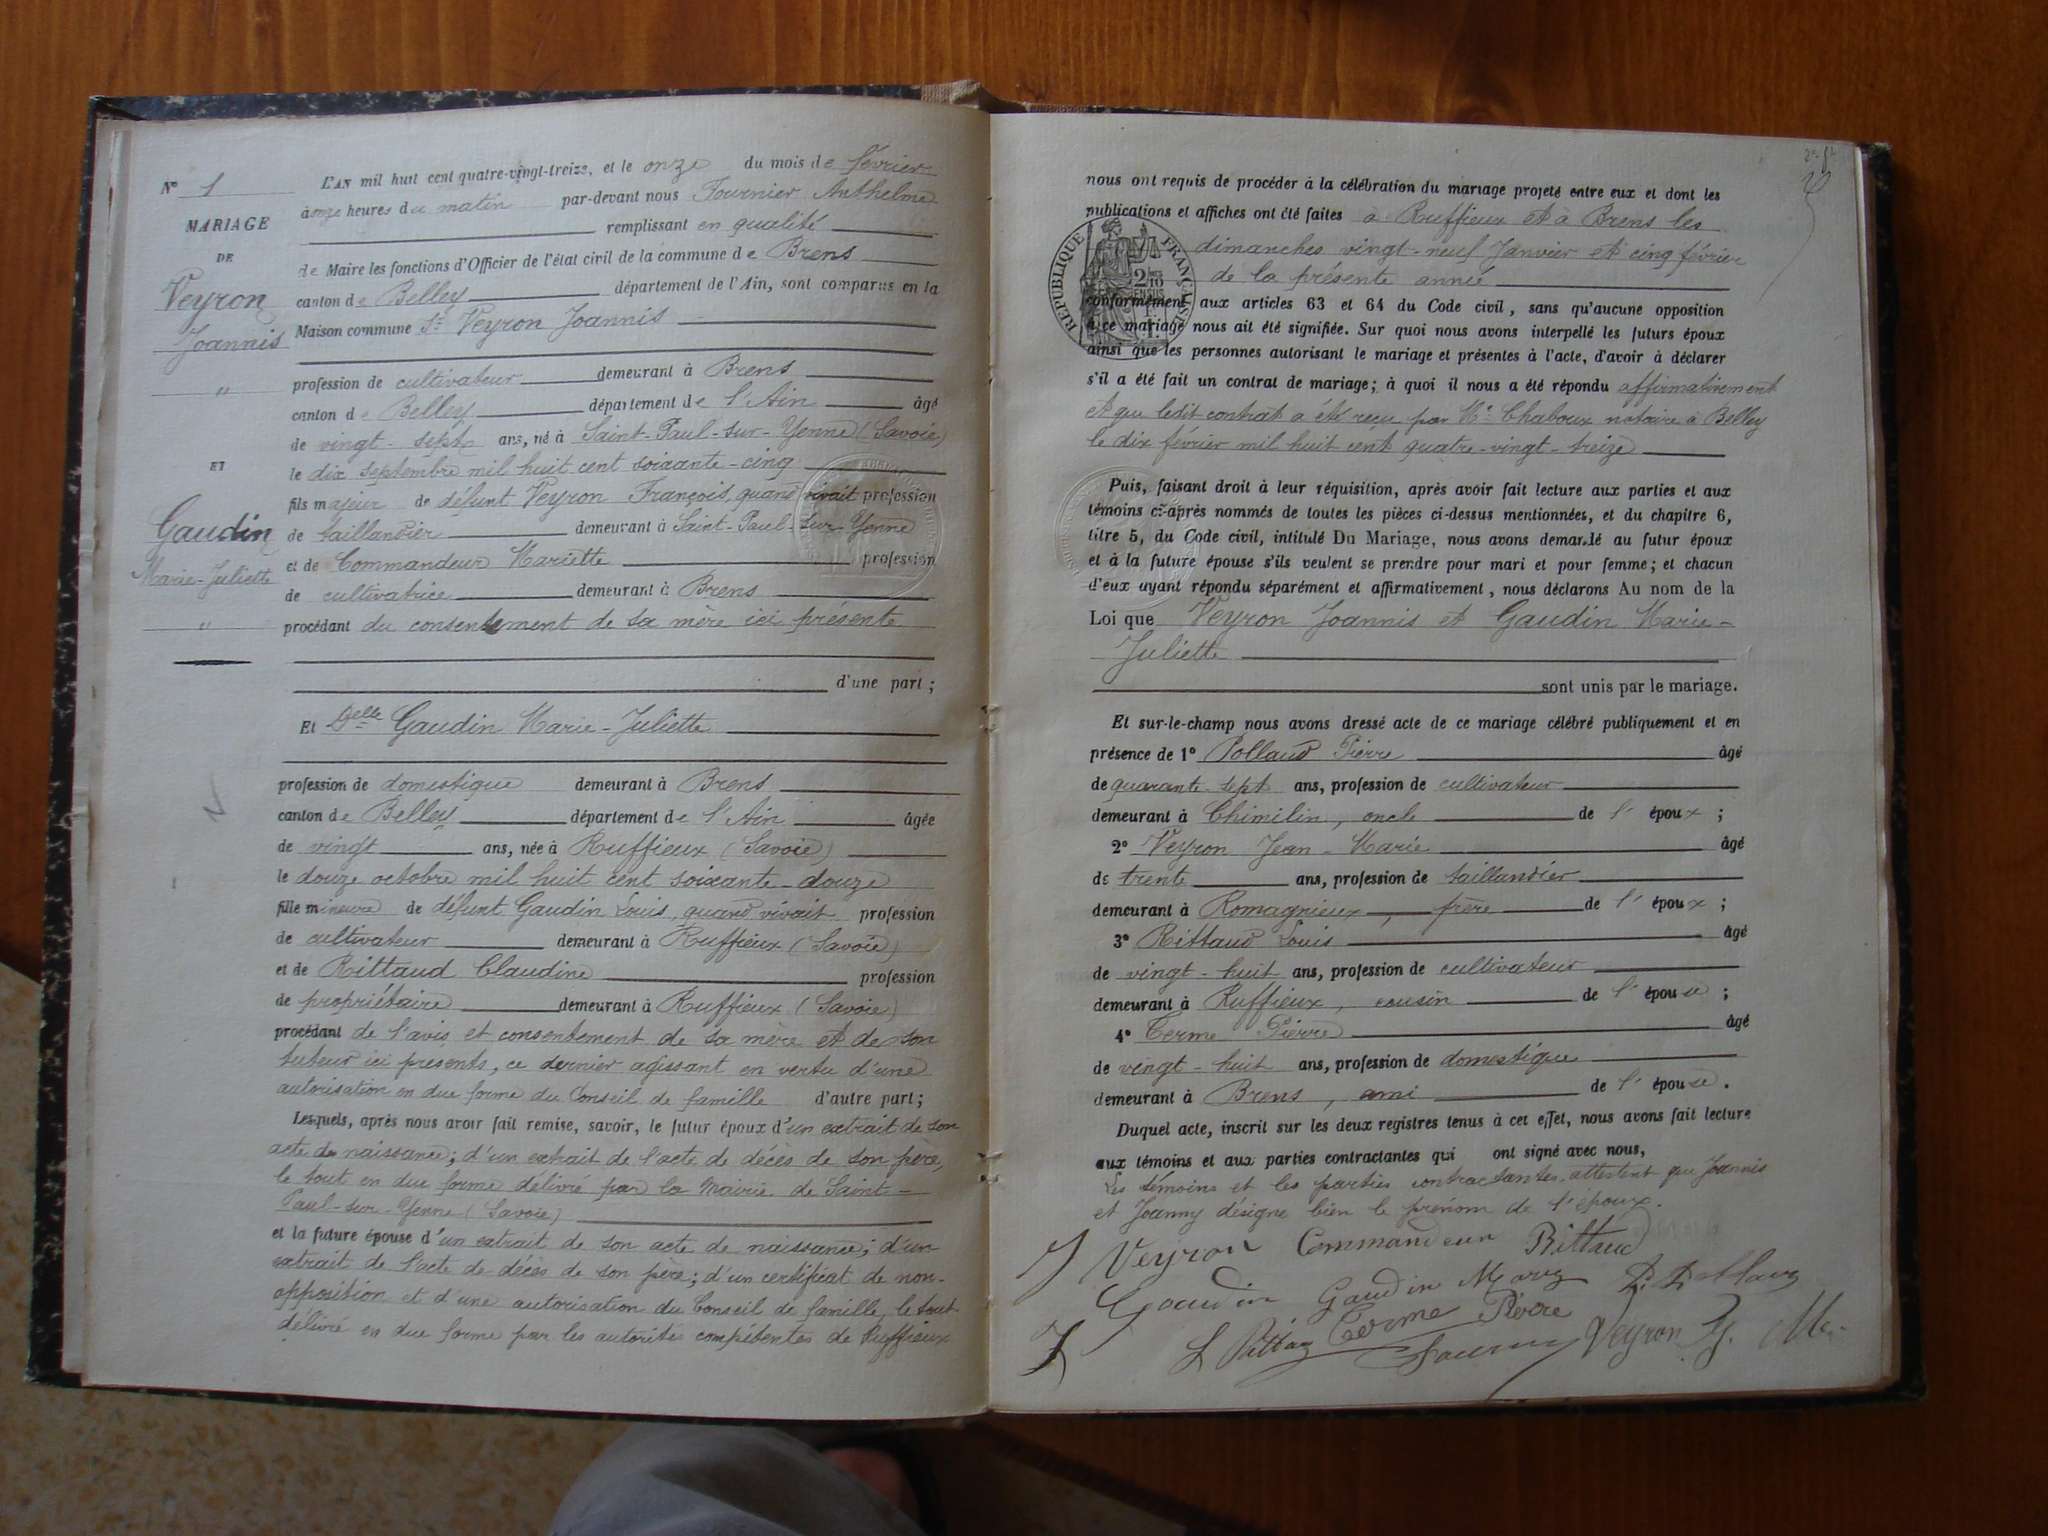 N° 1
MARIAGE
DE
Veyron
Joannis
"
ET
Gaudin
Marie-Juliette
"
L'AN mil huit cent quatre-vingt-treize, et le onze du mois de février
à onze heures du matin par-devant nous Fournier Anthelme
remplissant en qualité
de Maire les fonctions d'Officier de l'état civil de la commune de Brens
canton de Belley département de l'Ain, sont comparus en la
Maison commune Sr Veyron Joannis
profession de cultivateur demeurant à Brens
canton de Belley département de l'Ain âgé
de vingt-sept ans, né à Saint-Paul-sur-Yenne (Savoie)
le dix septembre mil huit cent soixante-cinq
fils majeur de défunt Veyron François, quand vivait profession
de taillandier demeurant à Saint-Paul-sur-Yenne
et de Commandeur Mariette profession
de cultivatrice demeurant à Brens
procédant du consentement de sa mère ici présente
d'une part ;
Et Delle Gaudin Marie-Juliette
profession de domestique demeurant à Brens
canton de Belley département de l'Ain âgée
de vingt ans, née à Ruffieux (Savoie)
le douze octobre mil huit cent soixante-douze
fille mineure de défunt Gaudin Louis, quand vivait profession
de cultivateur demeurant à Ruffieux (Savoie)
et de Rittaud Claudine profession
de propriétaire demeurant à Ruffieux (Savoie)
procédant de l'avis et consentement de sa mère et de son
tuteur ici présents, ce dernier agissant en vertu d'une
autorisation en due forme du Conseil de famille d'autre part ;
Lesquels, après nous avoir fait remise, savoir, le futur époux d'un extrait de son
acte de naissance ; d'un extrait de l'acte de décès de son père,
le tout en due forme délivré par la Mairie de Saint-
Paul-sur-Yenne (Savoie)
et la future épouse d'un extrait de son acte de naissance ; d'un
extrait de l'acte de décès de son père ; d'un certificat de non-
opposition et d'une autorisation du Conseil de famille, le tout
délivré en due forme par les autorités compétentes de Ruffieux
nous ont requis de procéder à la célébration du mariage projeté entre eux et dont les
publications et affiches ont été faites à Ruffieux et à Brens les
dimanches vingt-neuf Janvier et cinq février
de la présente année
RÉPUBLIQUE FRANÇAISE
conformément aux articles 63 et 64 du Code civil, sans qu'aucune opposition
à ce mariage nous ait été signifiée. Sur quoi nous avons interpellé les futurs époux
ainsi que les personnes autorisant le mariage et présentes à l'acte, d'avoir à déclarer
s'il a été fait un contrat de mariage ; à quoi il nous a été répondu affirmativement
et que ledit contrat a été reçu par Me Chaboux notaire à Belley
le dix février mil huit cent quatre-vingt-treize
Puis, faisant droit à leur réquisition, après avoir fait lecture aux parties et aux
témoins ci-après nommés de toutes les pièces ci-dessus mentionnées, et du chapitre 6,
titre 5, du Code civil, intitulé Du Mariage, nous avons demandé au futur époux
et à la future épouse s'ils veulent se prendre pour mari et pour femme ; et chacun
d'eux ayant répondu séparément et affirmativement, nous déclarons Au nom de la
Loi que Veyron Joannis et Gaudin Marie-
Juliette
sont unis par le mariage.
Et sur-le-champ nous avons dressé acte de ce mariage célébré publiquement et en
présence de 1° Pollaud Pierre âgé
de quarante-sept ans, profession de cultivateur
demeurant à Chimilin, oncle de l'époux ;
2° Veyron Jean-Marie âgé
de trente ans, profession de taillandier
demeurant à Romagnieux, frère de l'époux ;
3° Rittaud Louis âgé
de vingt-huit ans, profession de cultivateur
demeurant à Ruffieux, cousin de l'épouse ;
4° Terme Pierre âgé
de vingt-huit ans, profession de domestique
demeurant à Brens, ami de l'épouse.
Duquel acte, inscrit sur les deux registres tenus à cet effet, nous avons fait lecture
aux témoins et aux parties contractantes qui ont signé avec nous,
Les témoins et les parties contractantes attestent que Joannis
et Joanny désigne bien le prénom de l'époux.
J Veyron Commandeur Rittaud
Gaudin Gaudin Mary
Terme Pierre
Veyron J. M.